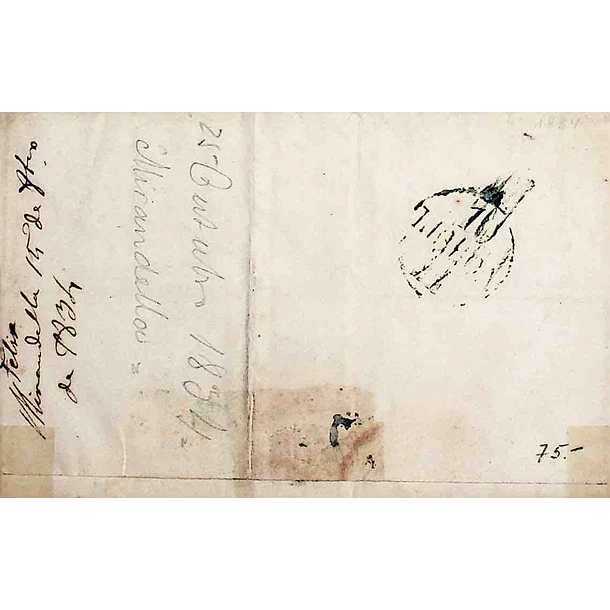 Felix
Mirandella 15 de 8bro
de 1834
25 Outubro 1834
Mirandella =
1834
75.-